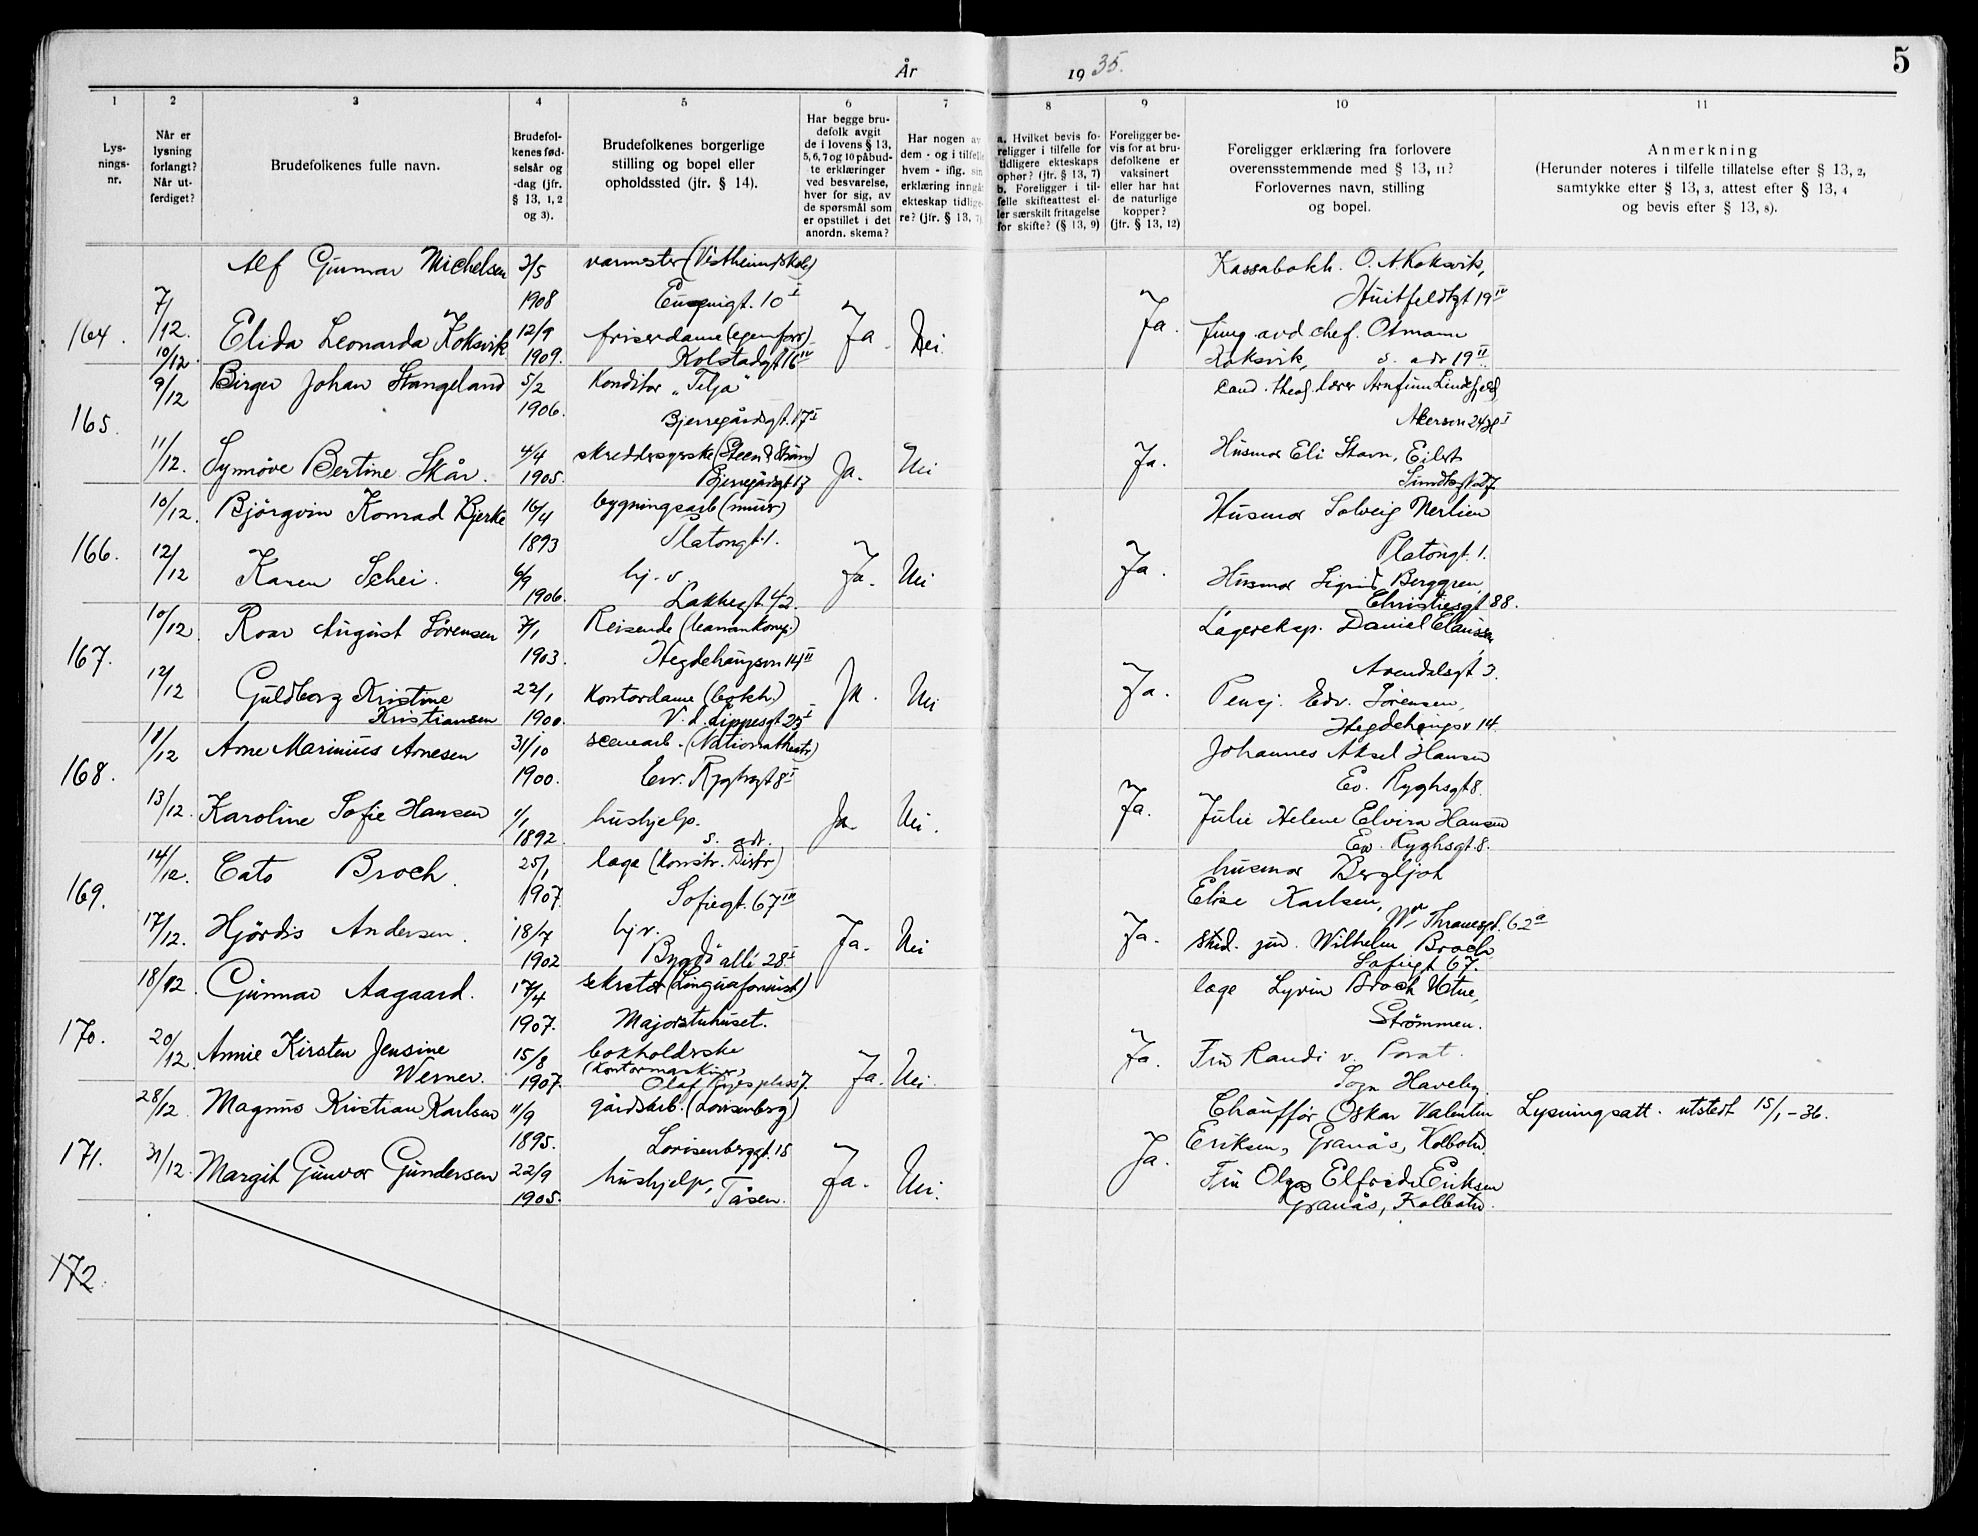 År 1935.
5
1 2 3 4 5 6 7 8 9 10 11
Lys-
nings-
nr.
Når er
lysning
forlangt?
Når ut-
ferdiget?
Brudefolkenes fulle navn.
Brudefol-
kenes fød-
selsår og
-dag (jfr.
§ 13, 1, 2
og 3).
Brudefolkenes borgerlige
stilling og bopel eller
opholdssted (jfr. § 14).
Har begge bru-
defolk avgit
de i lovens § 13,
5, 6, 7 og 10 påbud-
te erklæringer
ved besvarelse,
hver for sig, av
de spørsmål som
er opstillet i det
anordn. skema?
Har nogen av
dem - og i tilfelle
hvem - iflg. sin
erklæring inngå
ekteskap tidlige-
re? (jfr. § 13, 7)
a. Hvilket bevis fo-
religger i tilfelle for
tidligere ekteskaps
ophør? (jfr. § 13, 7)
b. Foreligger i til-
felle skifteattest el-
ler særskilt fritagelse
for skifte? (§ 13, 9)
Foreligger be-
vis for at bru-
defolkene er
vaksinert
eller har hat
de naturlige
kopper?
(jfr. § 13, 12)
Foreligger erklæring fra forlovere
overensstemmende med § 13, 11?
Forlovernes navn, stilling
og bopel.
Anmerkning
(Herunder noteres i tilfelle tillatelse efter § 13, 2,
samtykke efter § 13, 3, attest efter § 13, 4
og bevis efter § 13, 8).
164. 7/12. 10/12.
Alf Gunnar Michelsen 3/5 1908
varmester (Vestheim skole)
Eugenigt. 10 I
Elida Leonarda Koksvik 12/9 1909.
friserdame (egen forr.)
Kolstadgt 16 IV
Ja. Nei Ja.
Kassabokh. O. A. Koksvik,
Huitfeldtgt 19 IV
avd chef. Otmann
Koksvik, s. adr 19 II
165. 9/12 11/12.
Birger Johan Stangeland 5/2 1906.
Konditor "Telja"
Bjerregårdsgt. 17 I
Synnöve Bertine Skår. 4/4 1905.
skreddersyerske (Steen & Ström)
Bjerregårdsgt 17
Ja. Nei Ja.
Cand. theol. lærer Arnfinn Lindefjeld,
Akersvn 24
Husmor Eli Stavn, Eilert
Sundtsgt 27.
166. 10/12. 12/12
Björgvin Konrad Bjerke 16/4 1893
bygningsarb (murer)
Platongt. 1.
Karen Schei. 6/9 1906.
hj. v.
Lakkegt 42.
Ja. Nei Ja.
Husmor Solveig Nerlien
Platongt. 1.
Husmor Sigrid Berggren,
Christiesgt 88.
167. 10/12. 12/12
Roar August Sörensen 7/1 1903.
Reisende
Hegdehaugsvn 14 II
Guldborg Kristine
Kristiansen 22/1 1900.
Kontordame (bokh.)
V. d. Lippesgt 25 I
Ja. Nei Ja.
Lagereksp. Daniel Clausen
Arendalsgt 3.
Pensj. Edv. Sörensen,
Hegdehaugsv 14.
168. 11/12 13/12.
Arne Marinius Arnesen 31/10 1900.
scenearb. (Nationaltheatr)
Ew. Ryghsgt 8 I
Karoline Sofie Hansen 1/1 1892.
hushjelp.
s. adr.
Ja. Nei. Ja.
Johannes Aksel Hansen
Ev. Ryghsgt 8.
Julie Helene Elvira Hansen
Ev. Ryghsgt. 8.
169. 14/12. 17/12.
Cato Broch. 25/1 1907.
læge
Sofiegt. 67 IV
Hjördis Andersen. 18/7 1902
hj v.
Bygdö allé 28 I
Ja. Nei Ja.
husmor Bergljot
Elise Karlsen,
M. Thranesgt. 62 a
stud. jur. Wilhelm Broch
Sofiegt 67.
170. 18/12 20/12.
Gunnar Aagaard. 17/4 1907.
sekretær (Linguafoninst)
Majorstuhuset.
Annie Kirsten Jensine
Werner. 15/8 1907.
bokholderske
(Kontormaskiner)
Olaf Ryes plass 7.
Ja. Nei. Ja.
læge Broch Utne,
Strömmen.
Fru Randi v. Porat.
Sogn Haveby
171. 28/12. 31/12.
Magnus Kristian Karlsen 11/9 1895.
gårdsarb. (Lovisenberg)
Lovisenberggt. 15
Margit Gunvor Gundersen 22/9 1905.
hushjelp, Tåsen.
Ja. Nei. Ja.
Chaufför Oskar Valentin
Eriksen, Granås, Kolbotn
Fru Olga Elfride Eriksen
Granås, Kolbotn.
Lysningsatt. utstedt 15/1 - 36.
172.